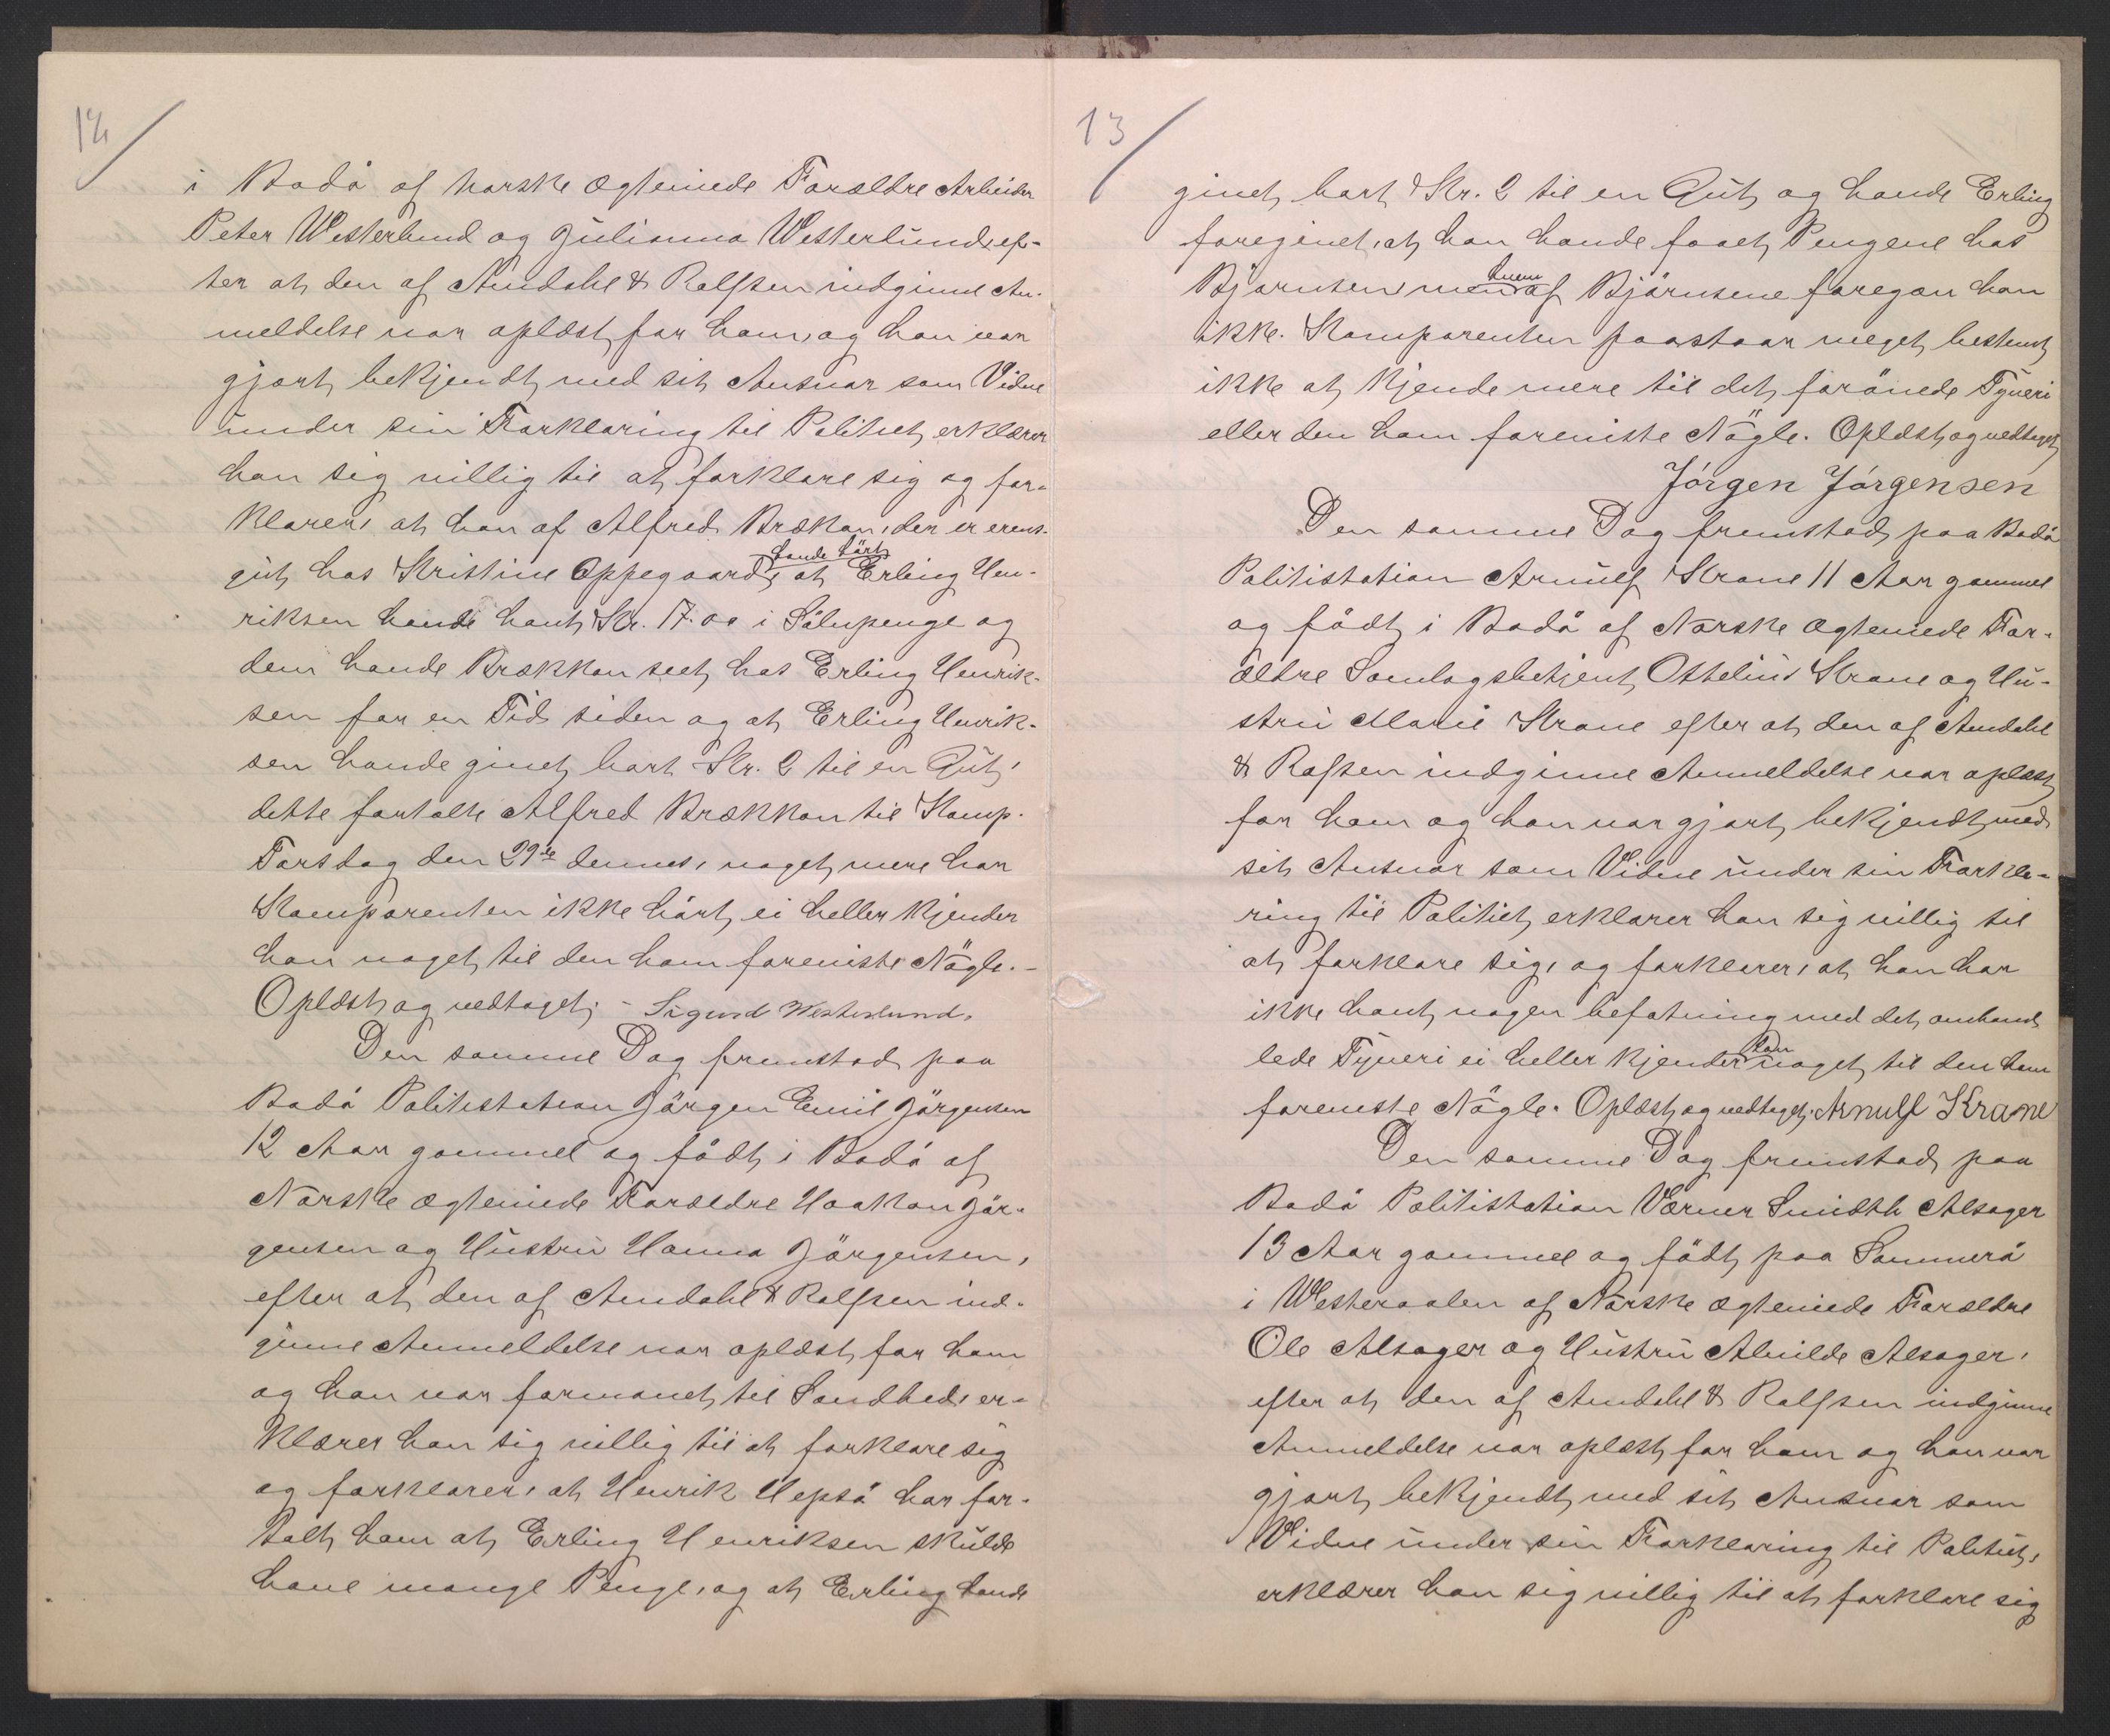 12
i Bodø af norske ægteviede Forældre Arbeider
Peter Westerlund og Julianna Westerlund, ef-
ter at den af Amdahl & Rolfsen indgivne An-
meldelse var oplæst for ham, og han var
gjort bekjendt med sit Ansvar som Vidne
under sin Forklaring til Politiet, erklærer
han sig villig til at forklare sig og for-
klarer, at han af Alfred Brækkan, der er erens-
gut hos Kristine Oppegaard, havde hørt at Erling Hen-
riksen havde havt Kr. 17.00 i Sølvpenge og
dem havde Brækkan seet hos Erling Henrik-
sen for en Tid siden og at Erling Henrik-
sen havde givet bort Kr. 2 til en Gut,
dette fortalte Alfred Brækkan til Komp.
Torsdag den 29de dennes, noget mere har
Komparenten ikke hørt, ei heller kjender
han noget til den ham foreviste Nøgle. -
Oplæst og vedtaget. - Sigurd Westerlund.
Den samme Dag fremstod paa
Bodø Politistation Jørgen Emil Jørgensen
12 Aar gammel og født i Bodø af
Norske ægteviede Forældre Haakon Jør-
gensen og Hustru Hanna Jørgensen,
efter at den af Amdahl & Rolfsen ind-
givne Anmeldelse var oplæst for ham
og han var formanet til Sandhed, er-
klærer han sig villig til at forklare sig
og forklarer, at Henrik Hepsø har for-
talt ham at Erling Henriksen skulde
have mange Penge, og at Erling havde
13
givet bort Kr. 2 til en Gut og havde Erling
foregivet, at han havde faaet Pengene hos
Bjørnsen, men hvem af Bjørnsene foregav han
ikke. Komparenten paastaar meget bestemt
ikke at kjende mere til det forøvede Tyveri
eller den ham foreviste Nøgle. Oplæst og vedtaget
Jörgen Jörgensen
Den samme Dag fremstod paa Bodø
Politistation Arnulf Krane 11 Aar gammel
og født i Bodø af Norske ægteviede For-
ældre Samlagsbetjent Ottelius Krane og Hu-
stru Marie Krane efter at den af Amdahl
& Rofsen indgivne Anmeldelse var oplæst
for ham og han var gjort bekjendt med
sit Ansvar som Vidne under sin Forkla-
ring til Politiet, erklærer han sig villig til
at forklare sig, og forklarer, at han har
ikke havt nogen befatning med det omhand-
lede Tyveri ei heller kjender han noget til den ham
foreviste Nøgle. Oplæst og vedtaget. Arnulf Krane
Den samme Dag fremstod paa
Bodø Politistation Værner Smidth Alsager
13 Aar gammel og født paa Sommerø
i Westeraalen af Norske ægteviede Forældre
Ole Alsager og Hustru Alvilde Alsager,
efter at den af Amdahl & Rolfsen indgivne
Anmeldelse var oplæst for ham og han var
gjort bekjendt med sit Ansvar som
Vidne under sin Forklaring til Politiet,
erklærer han sig villig til at forklare sig